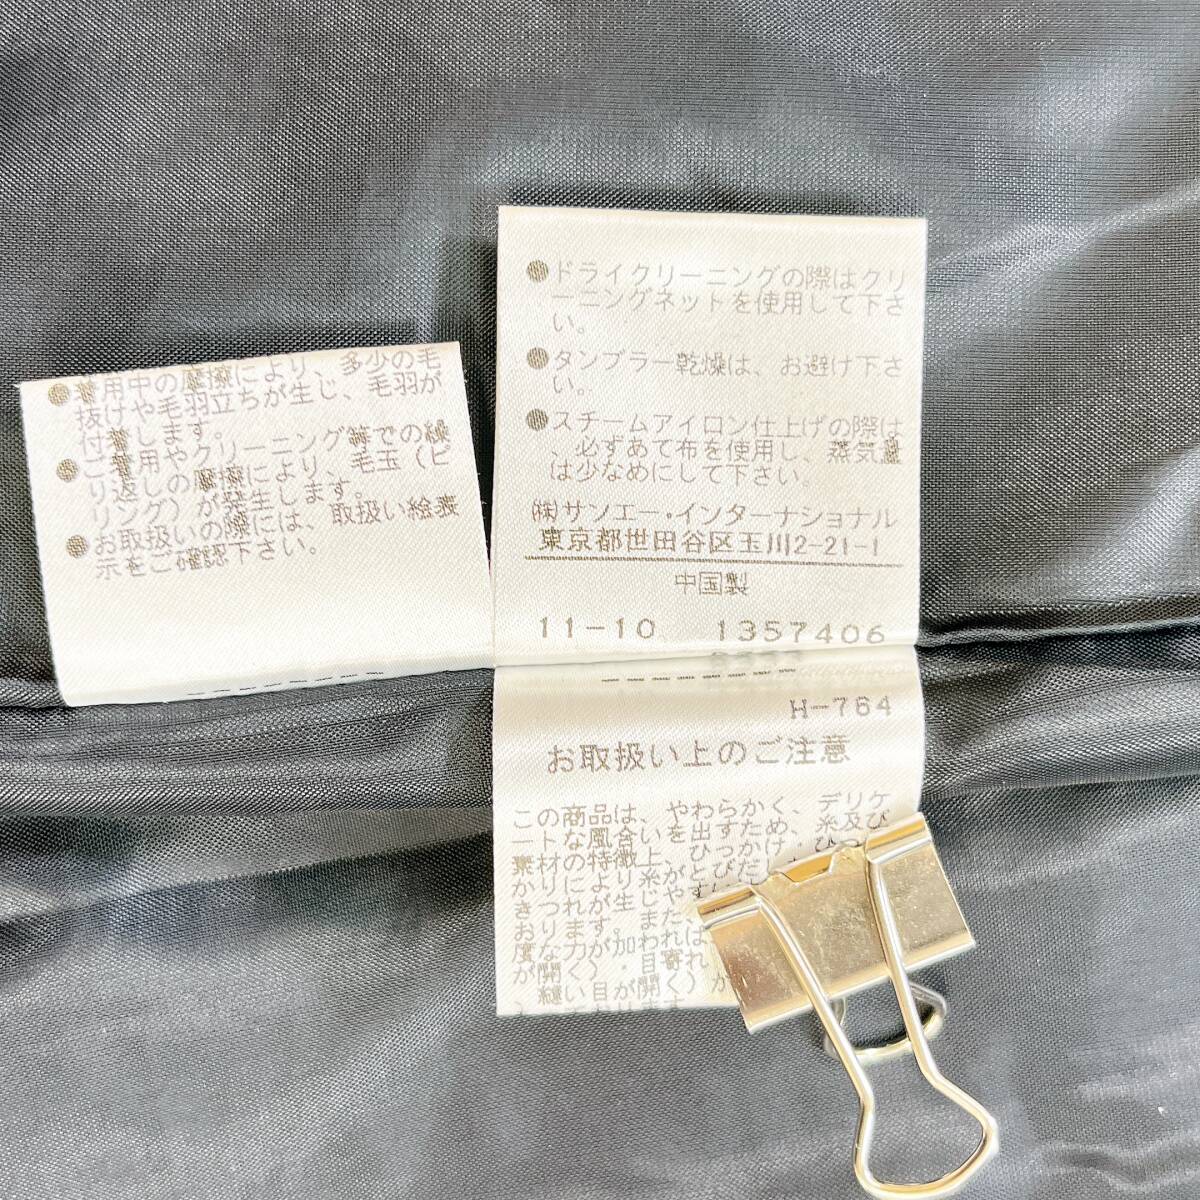 ●着用中の摩擦により、多少の毛
抜けや毛羽立ちが生じ、毛羽が
付着します。
●ご着用やクリーニング等での繰
り返しの摩擦により、毛玉（ピ
リング）が発生します。
●お取扱いの際には、取扱い絵表
示をご確認下さい。
●ドライクリーニングの際はクリ
ーニングネットを使用して下さ
い。
●タンブラー乾燥は、お避け下さ
い。
●スチームアイロン仕上げの際は
、必ずあて布を使用し、蒸気量
は少なめにして下さい。
㈱サンエー・インターナショナル
東京都世田谷区玉川2-21-1
中国製
11-10 1357406
H-764
お取扱い上のご注意
この商品は、やわらかく、デリケ
ートな風合いを出すため、糸及び
素材の特徴上、ひっかけ・ひっ
かりにより糸がとびだし
きつれが生じやす
おります。また、
度な力が加われば
が開く）・目寄れ
縫い目が開く）が